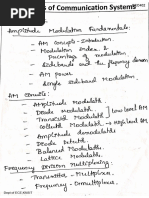 s of Communication Systems
Amplitude Modulation Fundamentals:
- AM Concepts - Introduction.
- Modulation Index &
Percentage of modulation
- Sidebands and the frequency domain
- AM power.
- Single sideband Modulation.
AM Circuits:
- Amplitude Modulators
- Diode Modulator
- Transistor Modulator
Low level AM
- Collector Modulators
High level AM
- Amplitude demodulators
- Diode detectors
- Balanced Modulators.
- Lattice Modulators.
Frequency Division Multiplexing:
- Transmitter - Multiplexers
- Frequency - Demultiplexers.